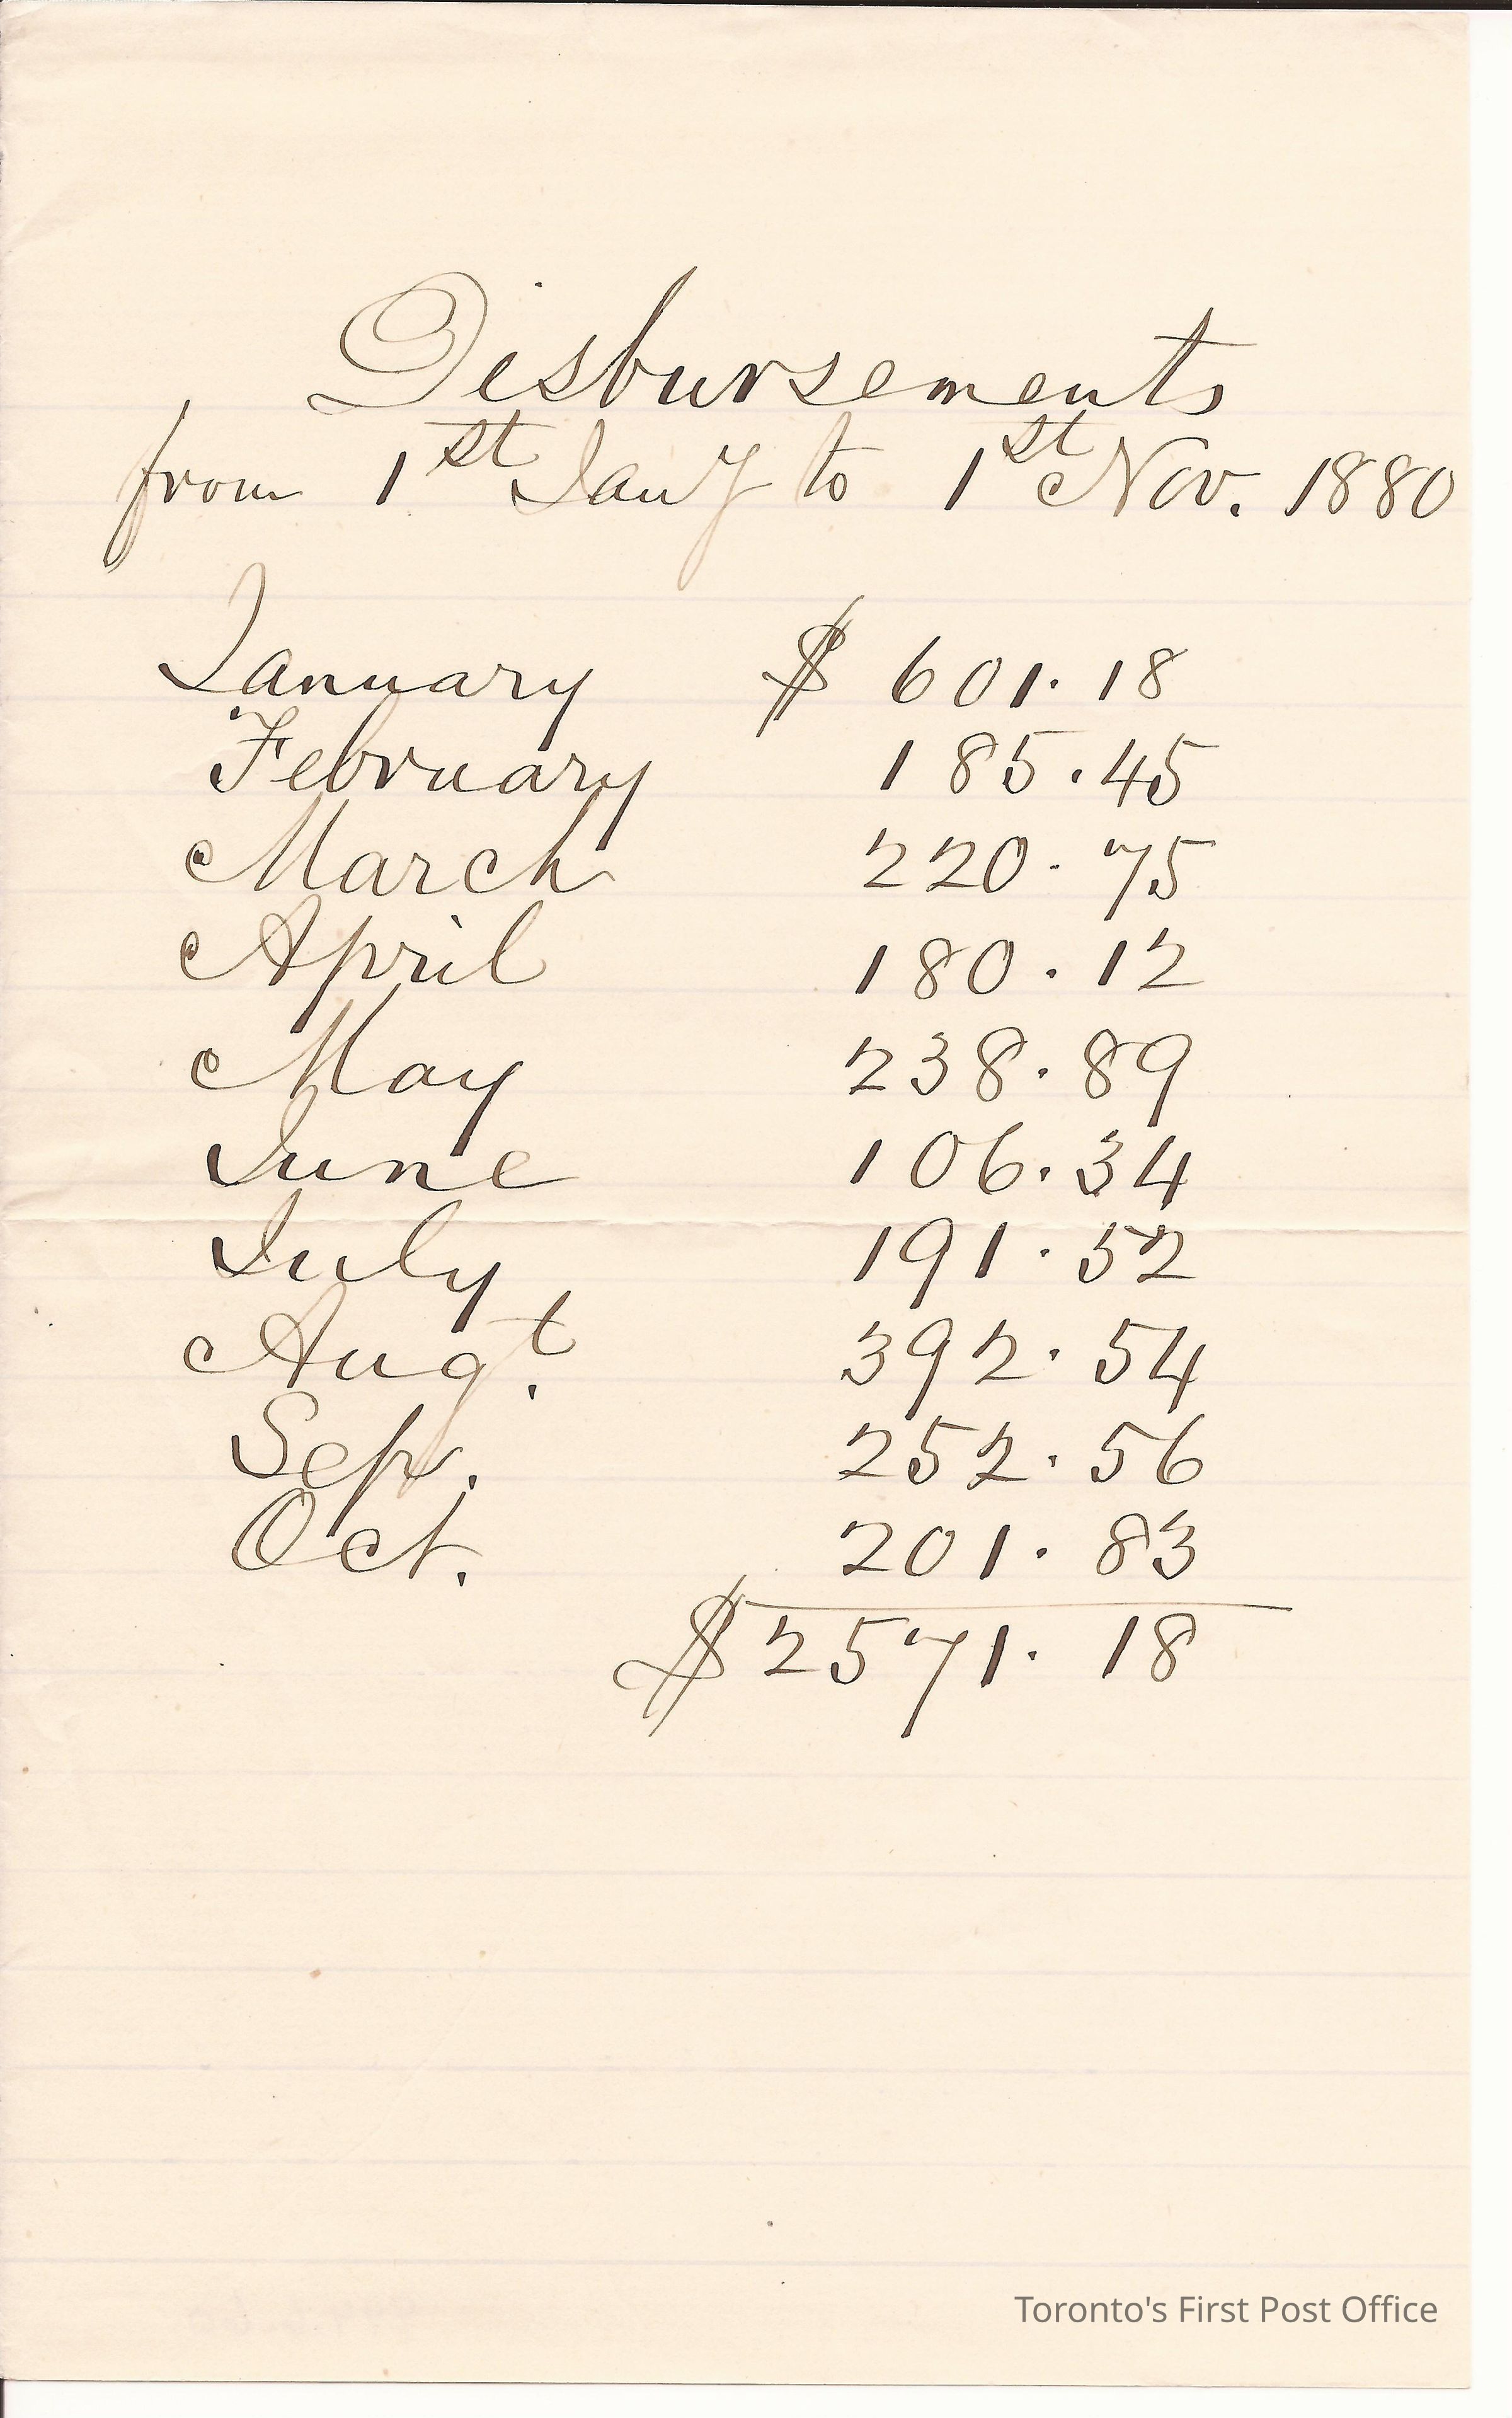 Disbursements
from 1st Jany to 1st Nov. 1880
January $ 601.18
February 185.45
March 220.75
April 180.12
May 238.89
June 106.34
July 191.52
Augt. 392.54
Sep. 252.56
Oct. 201.83
$2571.18
Toronto's First Post Office